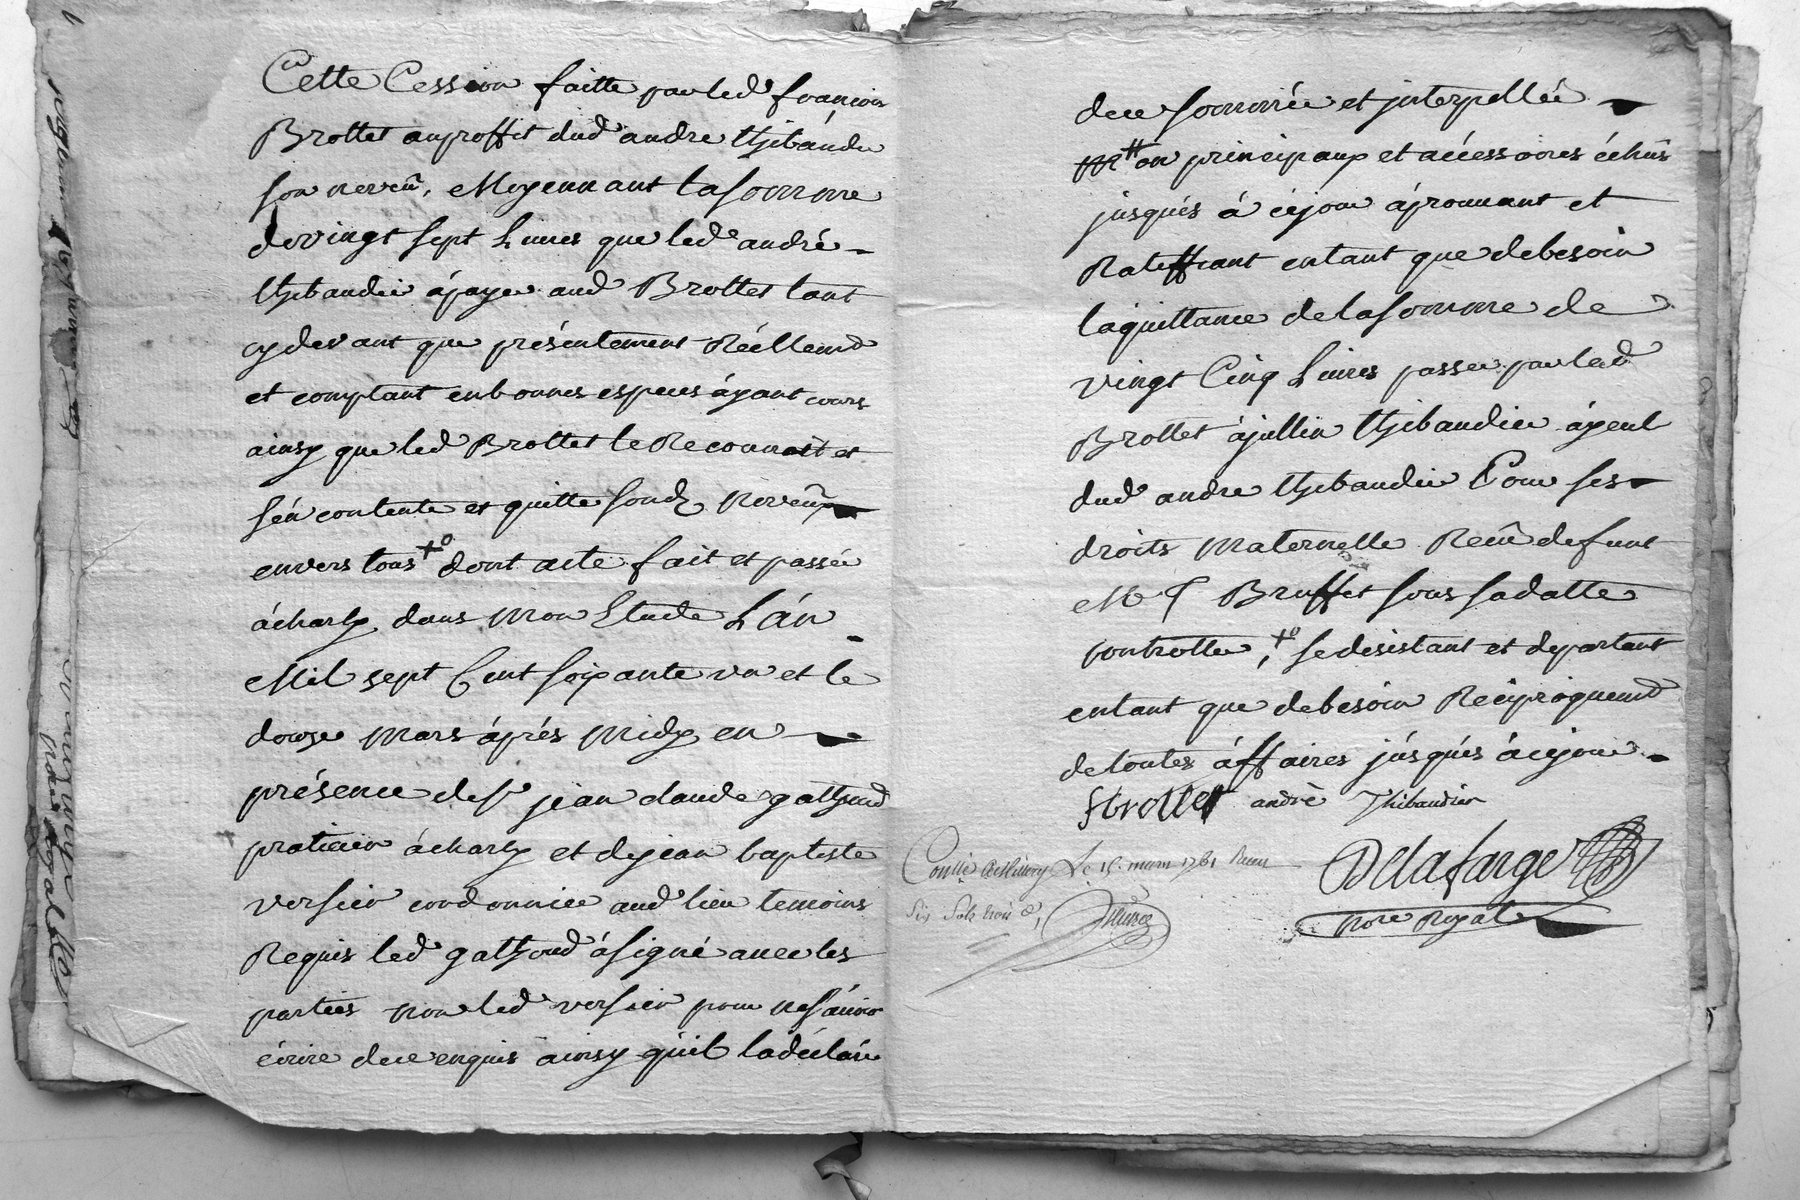 Cette Cession faitte par led francois
Brottet au proffit dud andre thibaudie
son neveû, Moyennant la somme
de vingt sept Livres que led andré
thibaudie à payé aud Brottet tant
cy devant que présentement Réellemt
et comptant en bonnes especes áyant cours
ainsy que led Brottet le Reconnoit et
s'en contente et quitte sond neveû
envers tous dont acte fait et passé
à charly dans mon Etude L'án
Mil sept Cent soixante un et le
douze mars áprés midy en
présence de sr jean claude gattond
praticien á charly et de jean baptiste
versier cordonnier aud lieu temoins
Requis led gattond á signé avec les
parties non led versier pour ne sávoir
écrire de ce enquis ainsy quil la déclaré
de ce sommée et interpellée
on principaux et accessoires échûs
jusqués á ce jour áprouvant et
Ratiffiant entant que de besoin
la quittance de la somme de
vingt Cinq Livres passée par led
Brottet á jullin thibaudier áyeul
dud andre thibaudie Pour ses
droits maternelle Reçû defunt
Me Bruffet sous sa datte
controllée, se desistant et departant
entant que de besoin Réciproquemt
de toutes áffaires jusqués á ce jour
Brottet andrè Thibaudier
Conllé à Millery Le 15. mars 1761 Recu
Delafarge
six sols
nore Royal